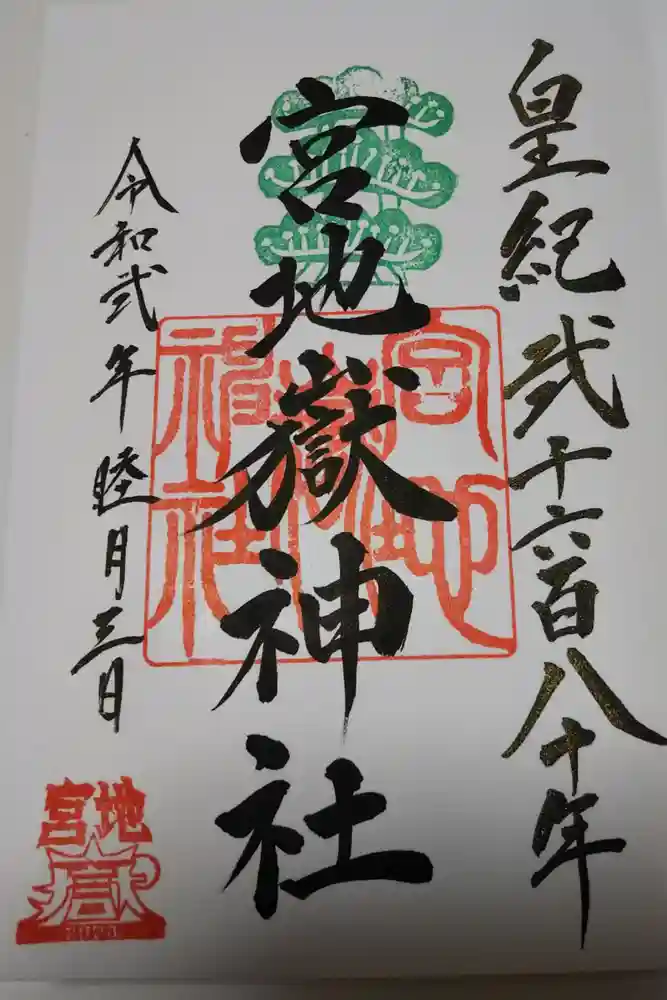 皇紀弐千六百八十年
宮地嶽神社
令和弐年睦月三日
宮地
嶽
2020